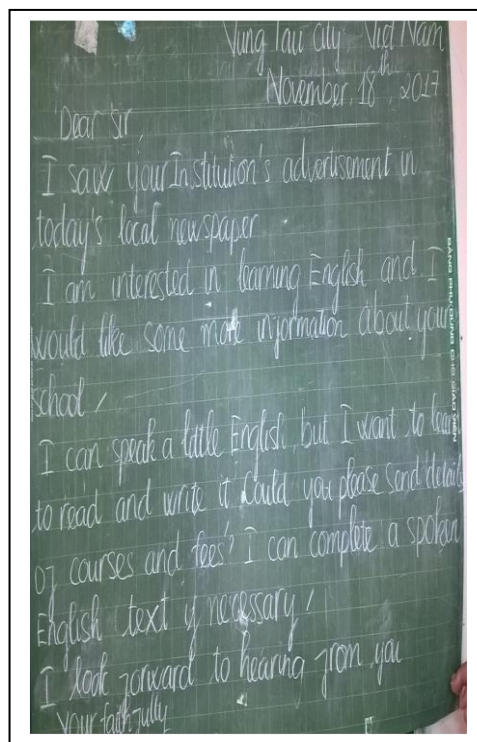 Vung Tau city - Viet Nam
November, 18th, 2017
Dear Sir,
I saw your Institution's advertisement in
today's local newspaper
I am interested in learning English and I
would like some more information about your
school,
I can speak a little English, but I want to learn
to read and write it. Could you please send details
of courses and fees? I can complete a spoken
English text if necessary,
I look forward to hearing from you
your faithfully
BẢNG PHỤ DÙNG CHO GIÁO VIÊN